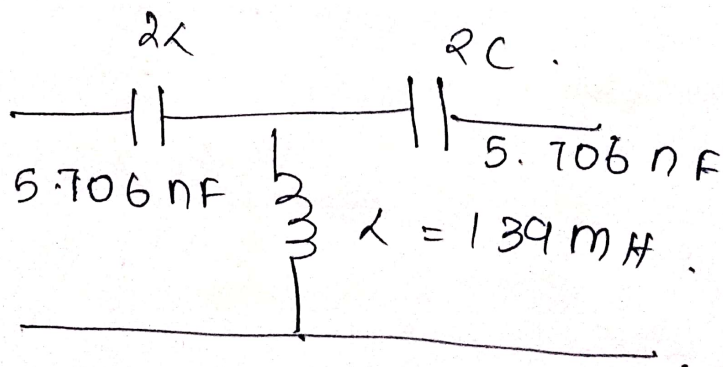 2L 2C.
5.706 nF 5.706 nF
L = 139 mH.